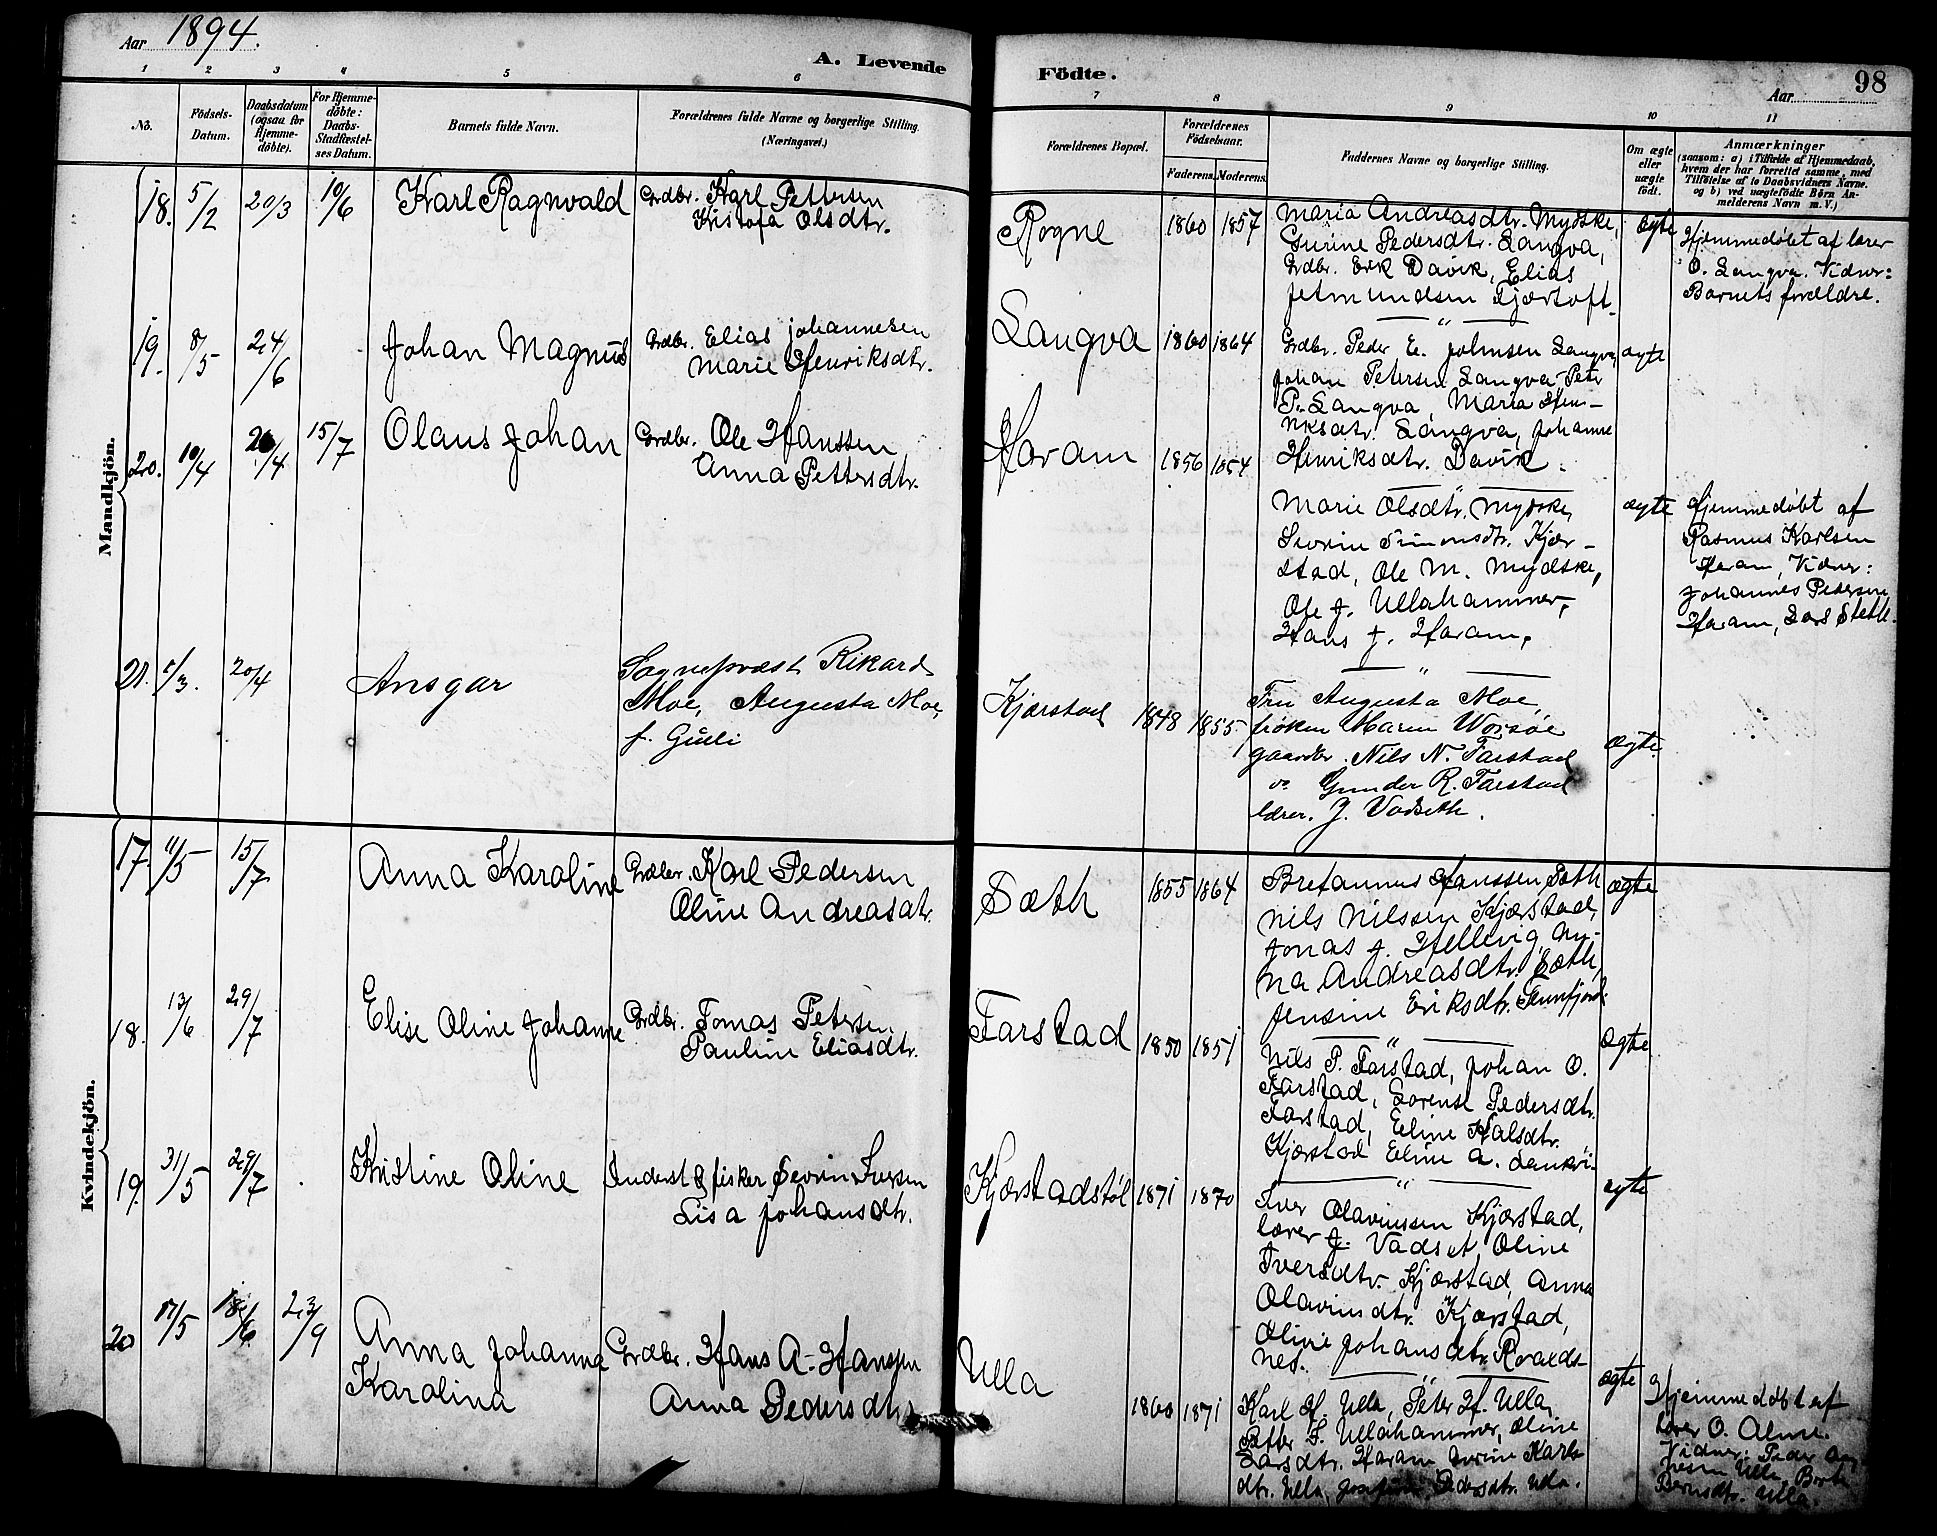 Aar 1894.
A. Levende
Födte.
98
Aar
1 2 3 4 5 6
7 8 9 10 11
No.
Födsels-
Datum.
Daabsdatum
(ogsaa for
Hjemme-
döbte).
For Hjemme-
döbte:
Daabs-
Stadfæstel-
ses Datum.
Barnets fulde Navn.
Forældrenes fulde Navne og borgerlige Stilling.
(Næringsvei.)
Forældrenes Bopæl.
Forældrenes
Födselsaar.
Faderens. Moderens.
Faddernes Navne og borgerlige Stilling.
Om ægte
eller
uægte
födt.
Anmærkninger
(saasom: a) i Tilfælde af Hjemmedaab,
hvem der har forrettet samme, med
Tilföielse af to Daabsvidners Navne.
og b) ved uægtefödte Börn An-
melderens Navn m. V.)
Mandkjön.
18. 5/2 20/3 10/6 Karl Ragnvald
Grdbr. Karl Pettersen
Kristofa Olsdtr.
Rogne 1860 1857
Maria Andreasdtr. Mydske,
Gurine Pedersdtr. Langva,
Grdbr. Erik Davik, Elias
Jetmundsen Fjærtoft.
Ægte
Hjemmedøbt af lærer
O. Langva. Vidner:
Barnets forældre.
19. 8/5 24/6 Johan Magnus
Grdbr. Elias Johannesen
Marie Henriksdtr.
Langva 1860 1864
Grdbr. Peder E. Johnsen Langva,
Johan Petersen Langva, Peter
P. Langva, Maria Hen-
riksdtr. Langva, Johanne
Henriksdtr. Davik.
ægte
20. 10/4 /4 15/7 Olaus Johan
Grdbr. Ole Hanssen
Anna Pettersdtr.
Haram 1856 1854
Marie Olsdtr. Mydske,
Sevrine Simonsdtr. Kjær-
stad, Ole M. Mydske,
Ole J. Ullahammer,
Hans J. Haram.
ægte
Hjemmedøbt af
Rasmus Karlsen
Haram, Vidner:
Johannes Pedersen
Haram, Lars Steth.
21. /3. 20/4 Ansgar
Sognepræst Rikard
Moe, Augusta Moe,
f. Gulli
Kjærstad 1848 1855
Fru Augusta Moe,
frøken Maren Worsøe
gaardbr. Nils N. Farstad
do Gunder R. Farstad
lærer. J. Vadseth.
Ægte.
Kvindekjön.
17. 11/5 15/7 Anna Karoline
Grdbr. Karl Pedersen
Oline Andreasdtr.
Sæth 1855 1864
Hanssen Sæth
Nils Nilssen Kjærstad,
Jonas J. Hellevig, An-
na Andreasdtr. Sæth,
Jensine Eriksdtr. Tennfjord.
Ægte
18. 13/6 29/7 Elise Oline Johanne
Grdbr. Tomas Petersen
Pauline Eliasdtr.
Farstad 1850 1851
Nils P. Farstad, Johan O.
Farstad, Lorense Pedersdtr.
Farstad, Eline Halsdtr.
Kjærstad Eline A.
Ægte
19. 31/5 29/7 Kristine Oline
Inderst & fisker Sevrin Iversen
Lisa Johansdtr.
Kjærstadstøl 1871 1870
Iver Olavinssen Kjærstad,
lærer J. Vadset, Oline
Iversdtr. Kjærstad, Anna
Olavinsdtr. Kjærstad,
Oline Johansdtr. Roalds-
nes.
ægte
20 17/5 18/6 23/9 Anna Johanna
Karolina
Grdbr. Hans A. Hanssen
Anna Pedersdtr.
Ulla 1860 1871
Karl H. Ulla, Peter H. Ulla,
Petter S. Ullahammer, Oline
Larsdtr. Haram, Karls-
dtr. Ulla, Pedersdtr. Ulla.
ægte
Hjemmedøbt af
lærer O. Alme.
Vidner: Peder
Ulla,
Berntsdtr. Ulla.